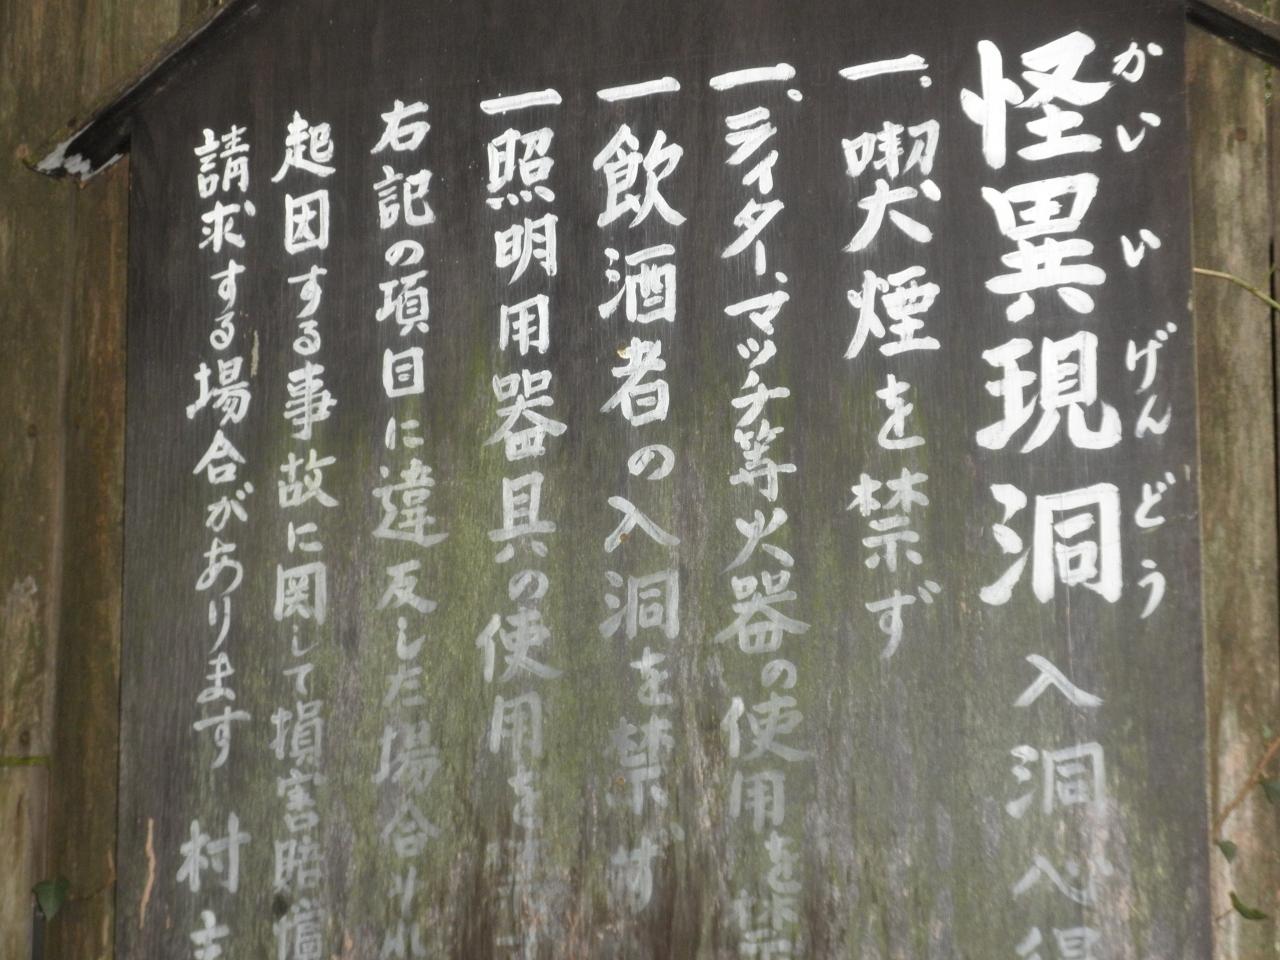 怪異現洞 入洞心得
かいいげんどう
一、喫煙を禁ず
一、ライター、マッチ等火器の使用を禁
一飲酒者の入洞を禁ず
一照明用器具の使用を
右記の項目に違反した場合
起因する事故に関して損害賠償
請求する場合があります 村